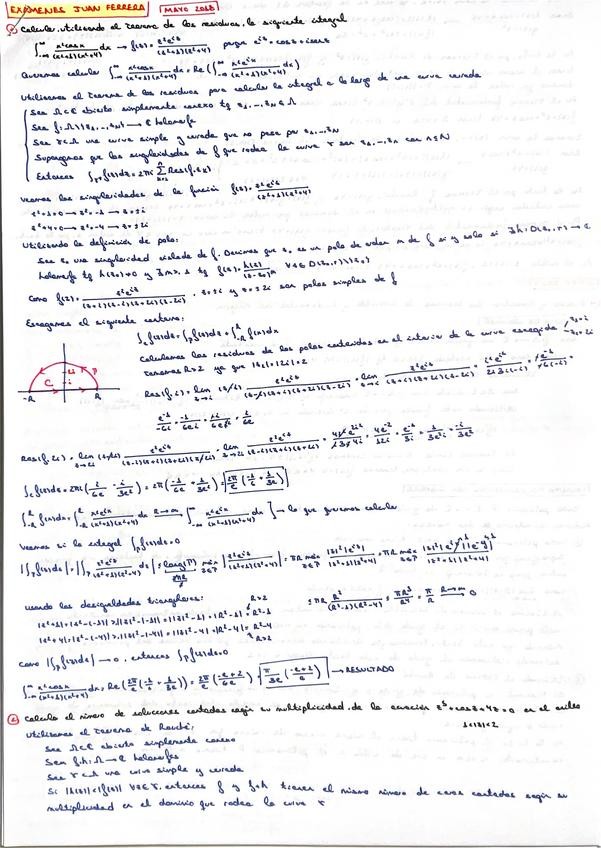 EXÁMENES JUAN FERRERA MAYO 2018
① Calcular, utilizando el teorema de los residuos, la siguiente integral
∫_{-∞}^{∞} x²cosx/((x²+1)(x²+4)) dx → f(z) = z²e^{iz}/((z²+1)(z²+4)) porque e^{iz} = cosz + isenz
Queremos calcular ∫_{-∞}^{∞} x²cosx/((x²+1)(x²+4)) dx = Re(∫_{-∞}^{∞} x²e^{ix}/((x²+1)(x²+4)) dx)
Utilizamos el teorema de los residuos para calcular la integral a lo largo de una curva cerrada
Sea Ω⊂ℂ abierto simplemente conexo tq z₁,...,z_N ∈ Ω
Sea f: Ω\{z₁,...,z_N} → ℂ holomorfa
Sea γ⊂Ω una curva simple y cerrada que no pase por z₁,...,z_N
Supongamos que las singularidades de f que rodea la curva γ son z₁,...,z_n con n≤N
Entonces ∫_γ f(z)dz = 2πi Σ_{k=1}^{n} Res(f, z_k)
Veamos las singularidades de la función f(z) = z²e^{iz}/((z²+1)(z²+4))
z²+1=0 → z²=-1 → z=±i
z²+4=0 → z²=-4 → z=±2i
Utilizando la definición de polo:
Sea z₀ una singularidad aislada de f. Decimos que z₀ es un polo de orden m de f si y solo si ∃h: D(z₀,r) → ℂ
holomorfa tq h(z₀)≠0 y ∃m≥1 tq f(z) = h(z)/(z-z₀)^m ∀z∈D(z₀,r)\{z₀}
Como f(z) = z²e^{iz}/((z+i)(z-i)(z+2i)(z-2i)), z=±i y z=±2i son polos simples de f
Escogemos el siguiente contorno:
∫_C f(z)dz = ∫_Γ f(z)dz + ∫_{-R}^{R} f(x)dx
Calculamos los residuos de los polos contenidos en el interior de la curva escogida z₁=i z₂=2i
Tomamos R>2 ya que |z₂|=|2i|=2
2i i C Γ -R R
Res(f,i) = lim_{z→i} (z-i) z²e^{iz}/((z-i)(z+i)(z+2i)(z-2i)) = lim_{z→i} z²e^{iz}/((z+i)(z+2i)(z-2i)) = i²e^{i²}/(2i·3i(-i)) = -e^{-1}/(-6i(-i)) =
Res(f,2i) = lim_{z→2i} (z-2i) z²e^{iz}/((z-i)(z+i)(z+2i)(z-2i)) = lim_{z→2i} z²e^{iz}/((z-i)(z+i)(z+2i))
∫_C f(z)dz = 2πi(i/6e - i/3e²) = 2π(-1/6e + 1/3e²) = 2π/e(-1/6 + 1/3e)
∫_{-R}^{R} f(x)dx = ∫_{-R}^{R} x²e^{ix}/((x²+1)(x²+4)) dx →(R→∞) ∫_{-∞}^{∞} x²e^{ix}/((x²+1)(x²+4)) dx → lo que queremos calcular
Veamos si la integral ∫_Γ f(z)dz = 0
Usando las desigualdades triangulares: R>2
|z²+1| = |z²-(-1)| ≥ ||z²|-|-1|| = ||z|²-1| = |R²-1| = R²-1
|z²+4| = |z²-(-4)| ≥ ||z²|-|-4|| = ||z|²-4| = |R²-4| = R²-4
R>2
≤ πR R²/((R²-1)(R²-4)) = πR³/R⁴ = π/R →(R→∞) 0
Como |∫_Γ f(z)dz| → 0, entonces ∫_Γ f(z)dz = 0
∫_{-∞}^{∞} x²cosx/((x²+1)(x²+4)) dx = Re(2π/e(-1/6 + 1/3e)) = 2π/e((-e+2)/6e) = π/3e((-e+2)/e) → RESULTADO
② Calcular el número de soluciones contadas según su multiplicidad, de la ecuación z⁵+cosz+4z=0 en el anillo
1<|z|<2
Utilizamos el teorema de Rouché:
Sea Ω⊂ℂ abierto simplemente conexo
Sean f,h: Ω → ℂ holomorfas
Sea γ⊂Ω una curva simple y cerrada
Si |h(z)|<|f(z)| ∀z∈γ, entonces f y f+h tienen el mismo número de ceros contados según su
multiplicidad en el dominio que rodea la curva γ